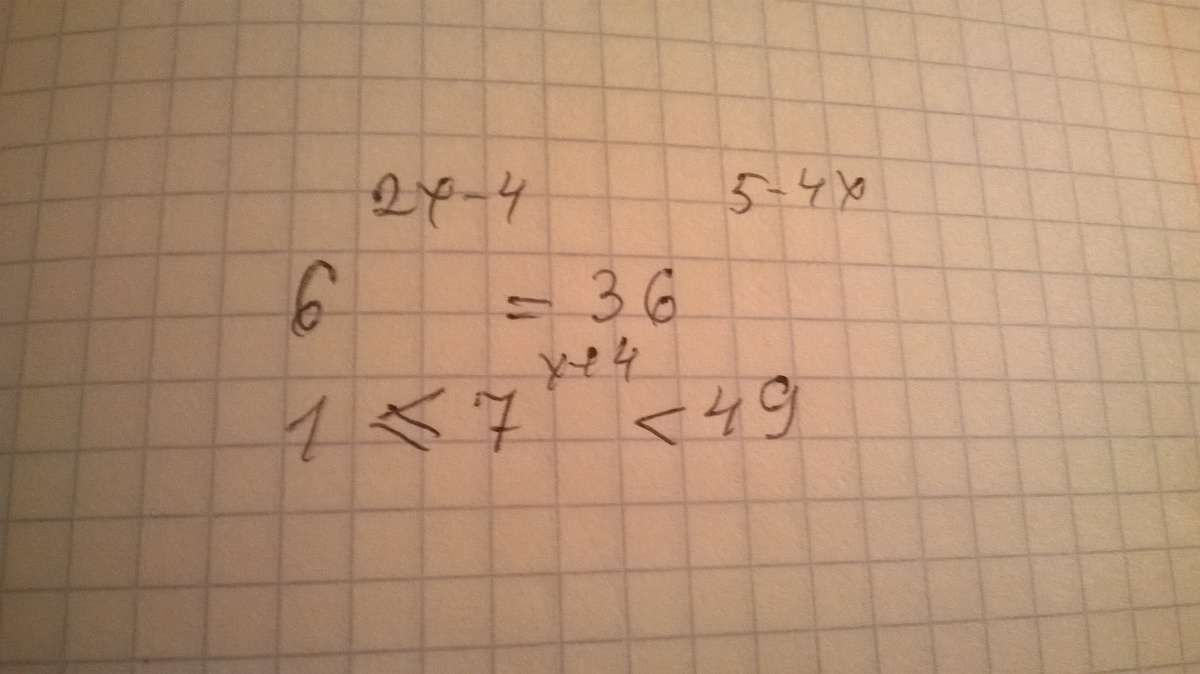 2x-4 5-4x
6 = 36
x+4
1 ≤ 7 < 49